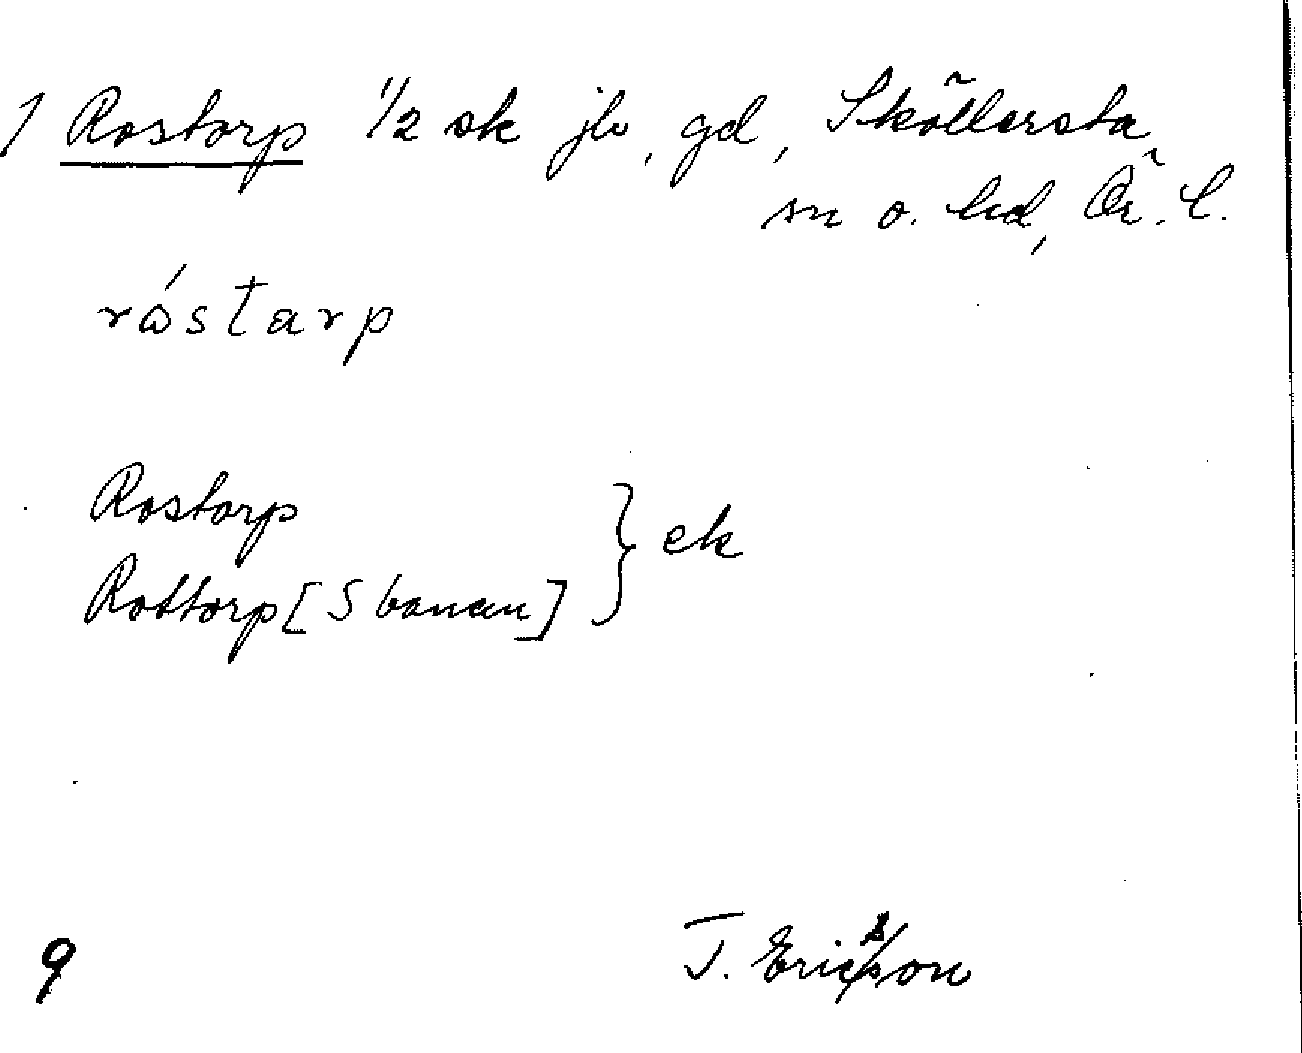 1 Rostorp 1/2 sk jb, gd, Sköllersta
sn o. hd, Ör. l.
róstarp
Rostorp
Rottorp [S banan] } ek
9
J. Ericsson